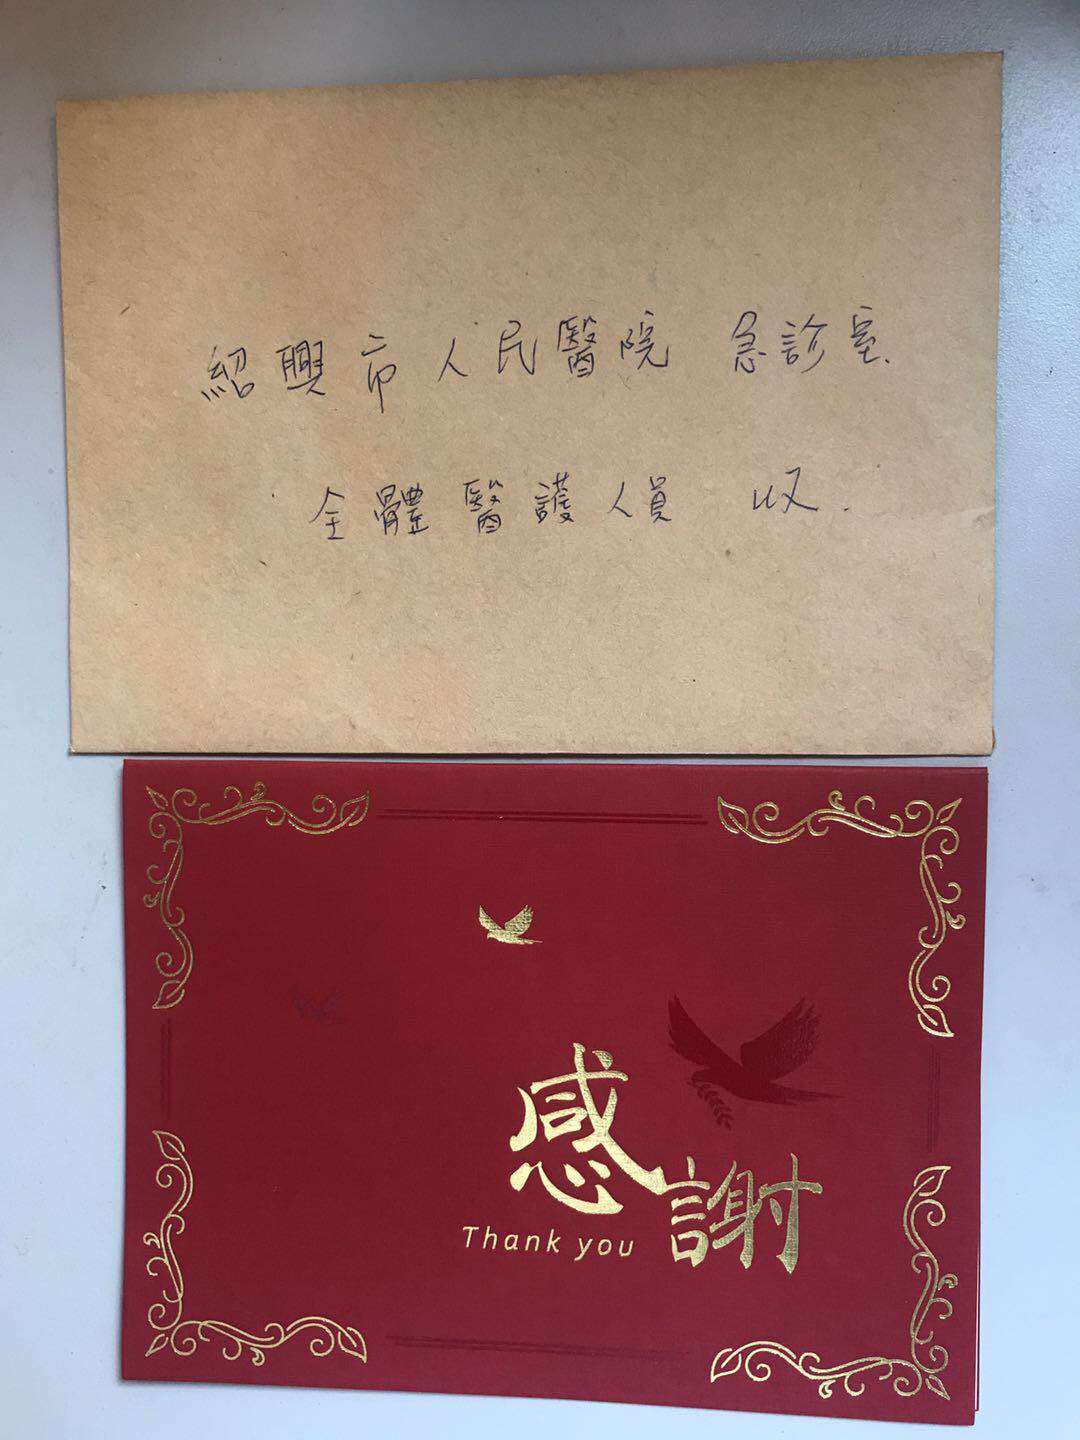 紹興市人民醫院 急診室.
全體醫護人員 收.
感謝
Thank you